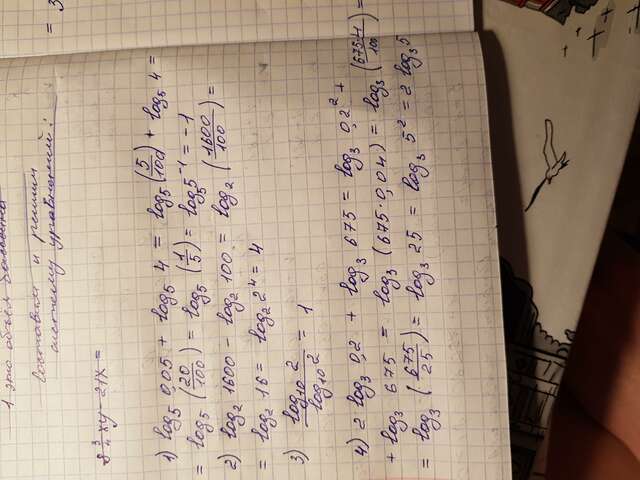 = 3
1 это объем
Составил и решил
систему уравнений:
1) log₅ 0,05 + log₅ 4 = log₅ (5/100) + log₅ 4 =
= log₅ (20/100) = log₅ (1/5) = log₅ 5⁻¹ = -1
2) log₂ 1600 - log₂ 100 = log₂ (1600/100) =
= log₂ 16 = log₂ 2⁴ = 4
3) log₁₀ 2 / log₁₀ 2 = 1
4) 2 log₃ 0,2 + log₃ 675 = log₃ 0,2² +
+ log₃ 675 = log₃ (675·0,04) = log₃ (675·4/100) =
= log₃ (675/25) = log₃ 25 = log₃ 5² = 2 log₃ 5